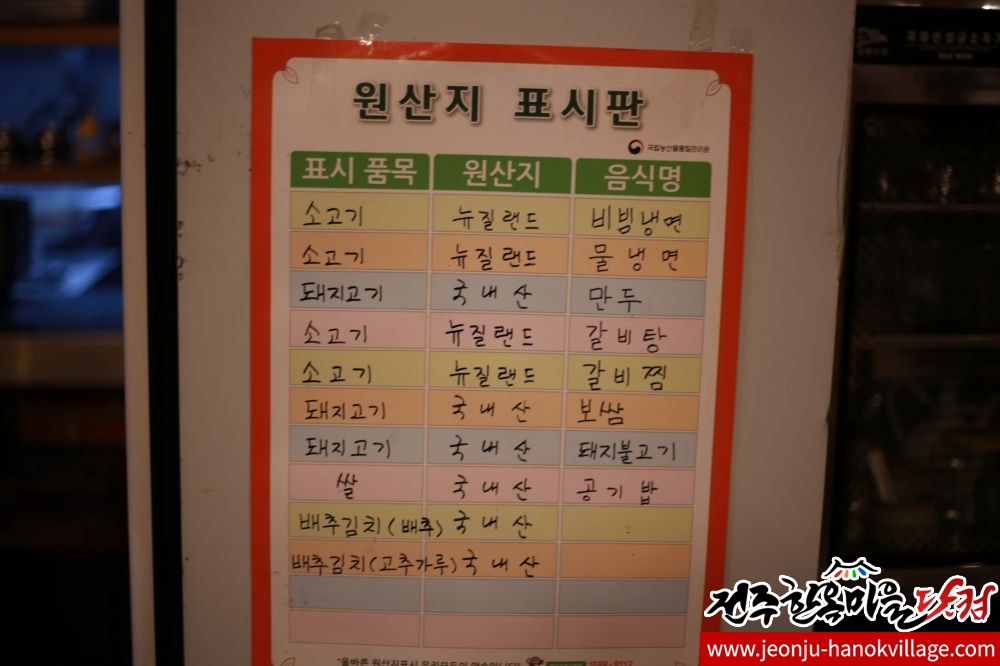 원산지 표시판
국립농산물품질관리원
표시 품목 원산지 음식명
소고기 뉴질랜드 비빔냉면
소고기 뉴질랜드 물냉면
돼지고기 국내산 만두
소고기 뉴질랜드 갈비탕
소고기 뉴질랜드 갈비찜
돼지고기 국내산 보쌈
돼지고기 국내산 돼지불고기
쌀 국내산 공기밥
배추김치(배추) 국내산
배추김치(고추가루) 국내산
"올바른 원산지표시 우리모두의 약속입니다"
전주한옥마을닷컴
www.jeonju-hanokvillage.com